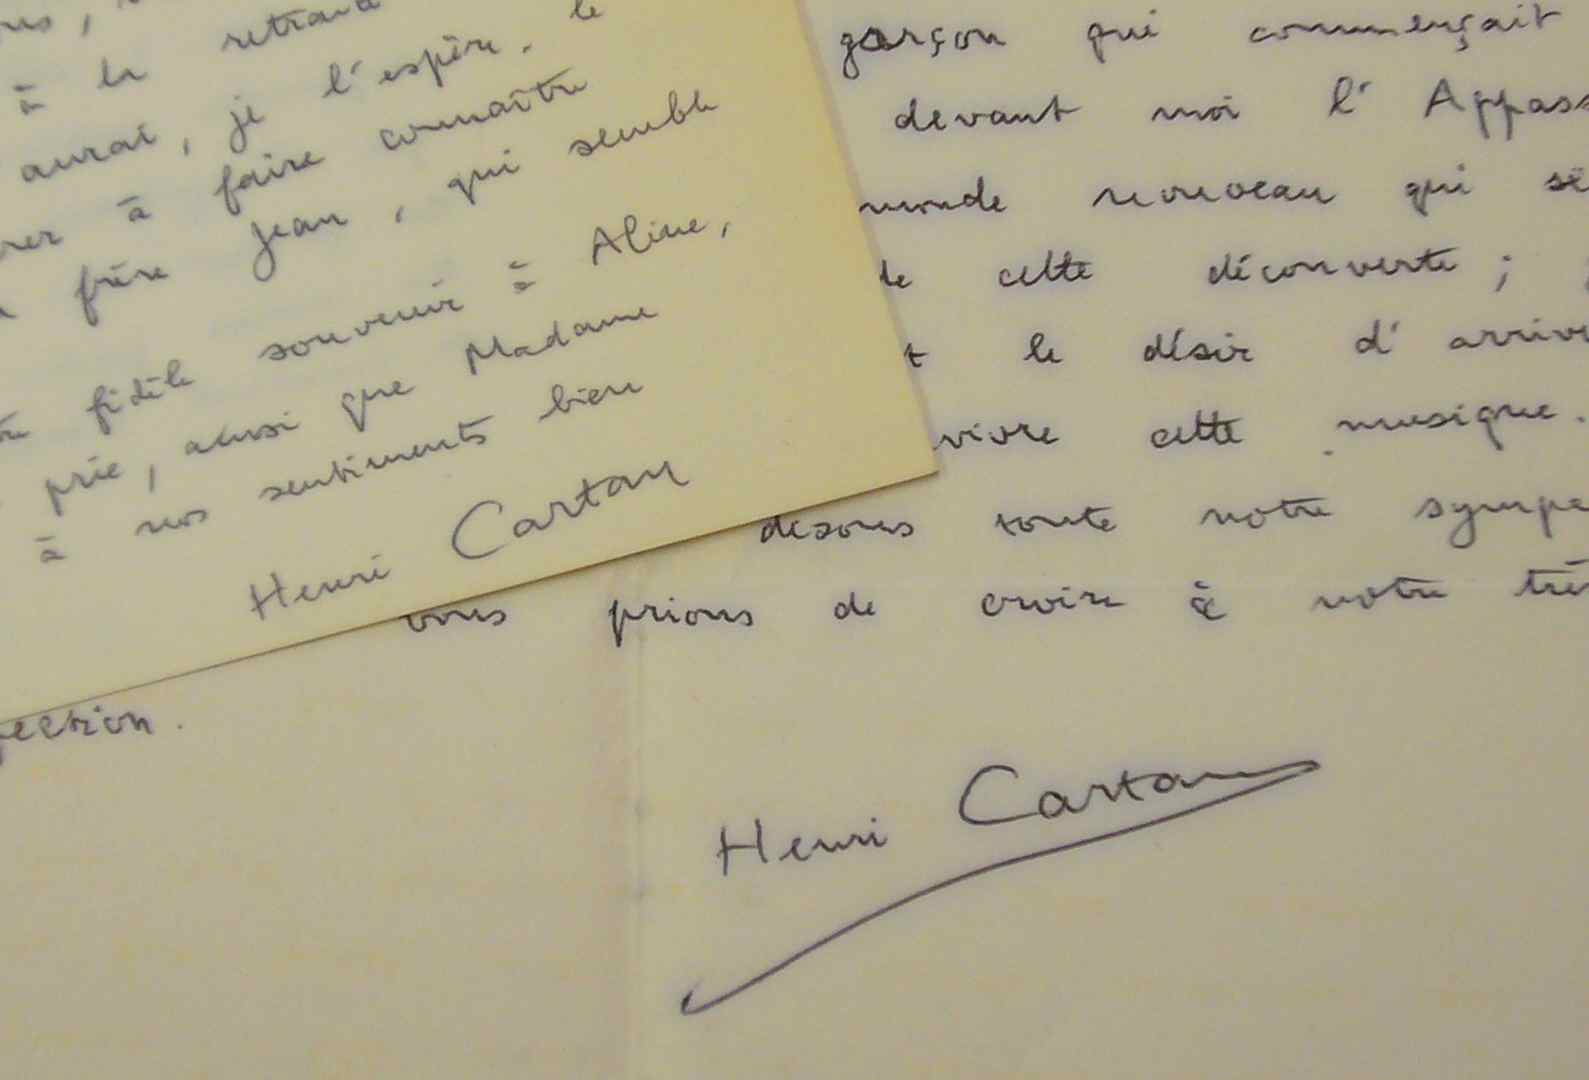 à la retraite
aurai, je l'espère, le
à faire connaître
frère Jean, qui semble
fidèle souvenir à Aline,
prie, ainsi que Madame
à nos sentiments bien
Henri Cartan
garçon qui commençait
devant moi l'Appass
monde nouveau qui se
de cette découverte ;
t le désir d'arriv
vivre cette musique.
disons toute notre sympa
vous prions de croire à notre trè
fection.
Henri Cartan